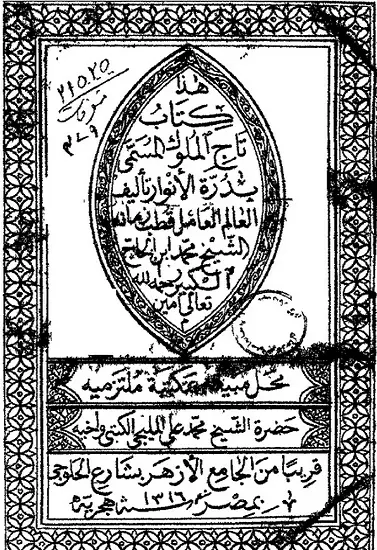 هذا
كتاب
تاج الملوك المسمى
بدرة الأنوار تأليف
العالم العامل قطب زمانه
الشيخ محمد ابن الحاج
الكبير رحمه الله
تعالى آمين
٢١٥٢٥
محل مبيعه بمكتبة ملتزميه
حضرة الشيخ محمد علي المليجي الكتبي وأخيه
قريبا من الجامع الأزهر بشارع الحلوجي
بمصر سنة ١٣١٦ هجرية